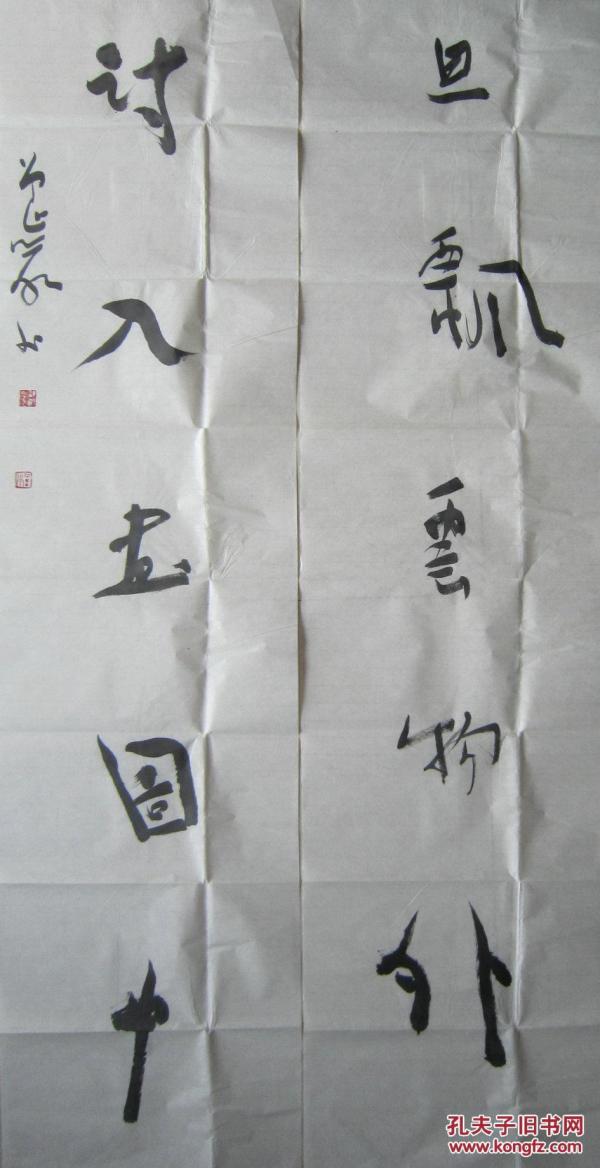 旦飄雲物外
詩入畫圖中
书
孔夫子旧书网
www.kongfz.com